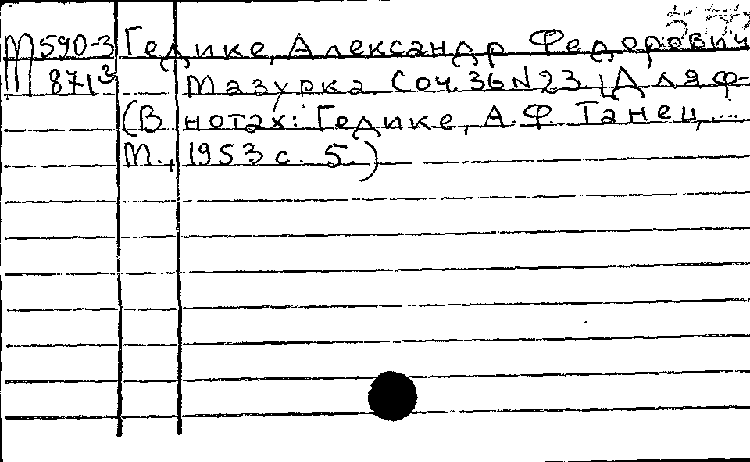 М590-3 Гедике, Александр Федорович
871³ Мазурка. Соч. 36 N 23 [Для ф-
(В нотах: Гедике, А.Ф. Танец, ...
М., 1953 с. 5)